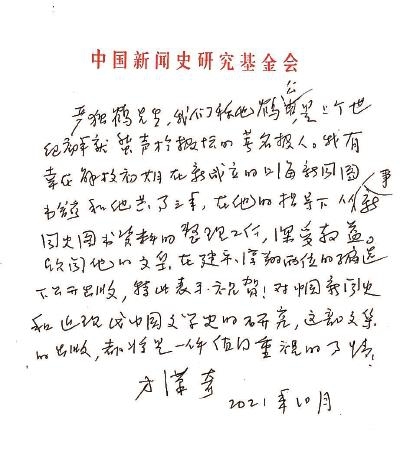 中国新闻史研究基金会
严独鹤先生，我们称他鹤公，是上个世
纪初年就蜚声于报坛的著名报人。我有
幸在解放初期在新成立的上海新闻图
书馆和他共了三年，在他的指导下从事新
闻史图书资料的整理工作，深受教益。
欣闻他的文集在建平、淳翔两位的编选
下公开出版，特此表示祝贺！对中国新闻史
和近现代中国文学史的研究，这部文集
的出版，都将是一件值得重视的事情。
方汉奇
2021年10月